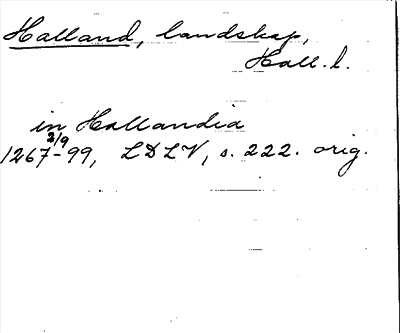 Halland, landskap,
Hall. l.
in Hallandia
2/9
1267-99, LDLV, s. 222. orig.